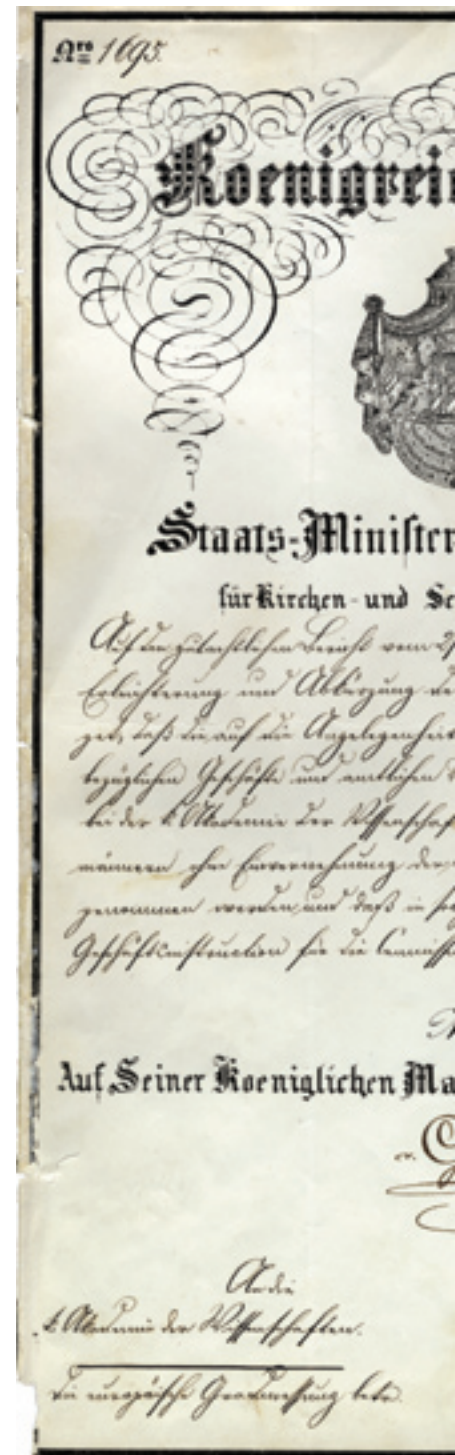 Nro 1695.
Koenigrei
Staats-Minister
für Kirchen- und Sc
Auf den gutachtlichen Bericht vom 2
Erleichterung und Abkürzung de
get, daß die auf die Angelegenheit
bezüglichen Geschäfte und amtlichen
bei der k. Akademie der Wissenschaf
männern ohne Einvernehmung der
genommen werden, und daß in so
Geschäftsinstruction für die Commiss
Auf Seiner Koeniglichen Ma
An die
k. Akademie der Wissenschaften.
Die europäische Gradmessung betr.